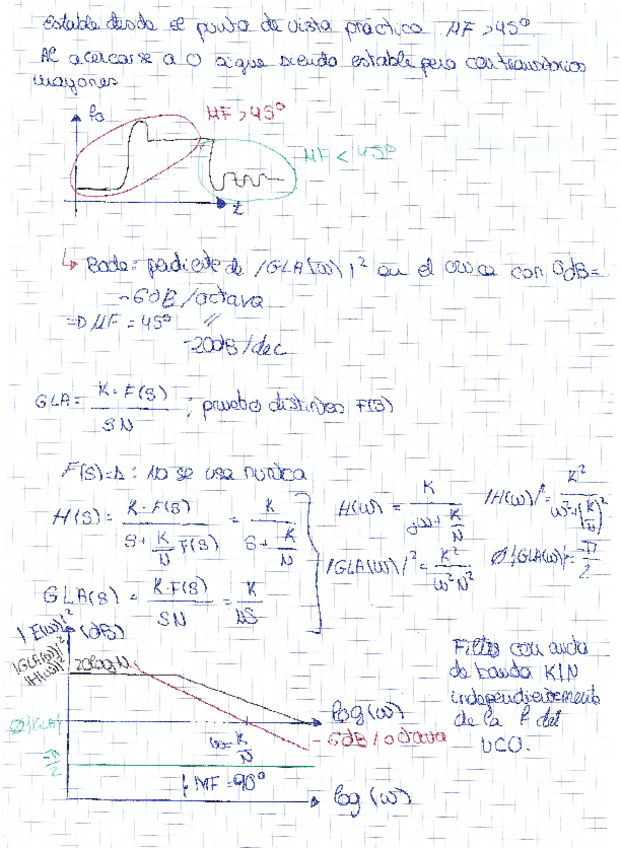 Estable desde el punto de vista práctico MF >45º
Al acercarse a 0 sigue siendo estable pero con transitorios
mayores
fo
MF >45º
MF < 45º
t
↳ Bode: pendiente de |GLA(ω)|² en el cruce con 0dB =
-6dB/octava
=> MF = 45º "
-20dB/dec
GLA = K·F(S) / SN ; pruebo distintos F(S)
F(S)=1: No se usa nunca
H(S) = K·F(S) / S+ K/N F(S) = K / S+ K/N
H(ω) = K / jω+ K/N
|H(ω)|² = K² / ω²+(K/N)²
GLA(S) = K·F(S) / SN = K / NS
|GLA(ω)|² = K² / ω²N²
Ø|GLA(ω)|= -π/2
|E(ω)|² (dB)
|GLA(ω)|²
|H(ω)|²
20logN
log(ω)
-6dB/octava
Ø|GLA|
ω= K/N
-π/2
MF = 90º
log (ω)
Filtro con ancho
de banda K/N
independientemente
de la f del
VCO.